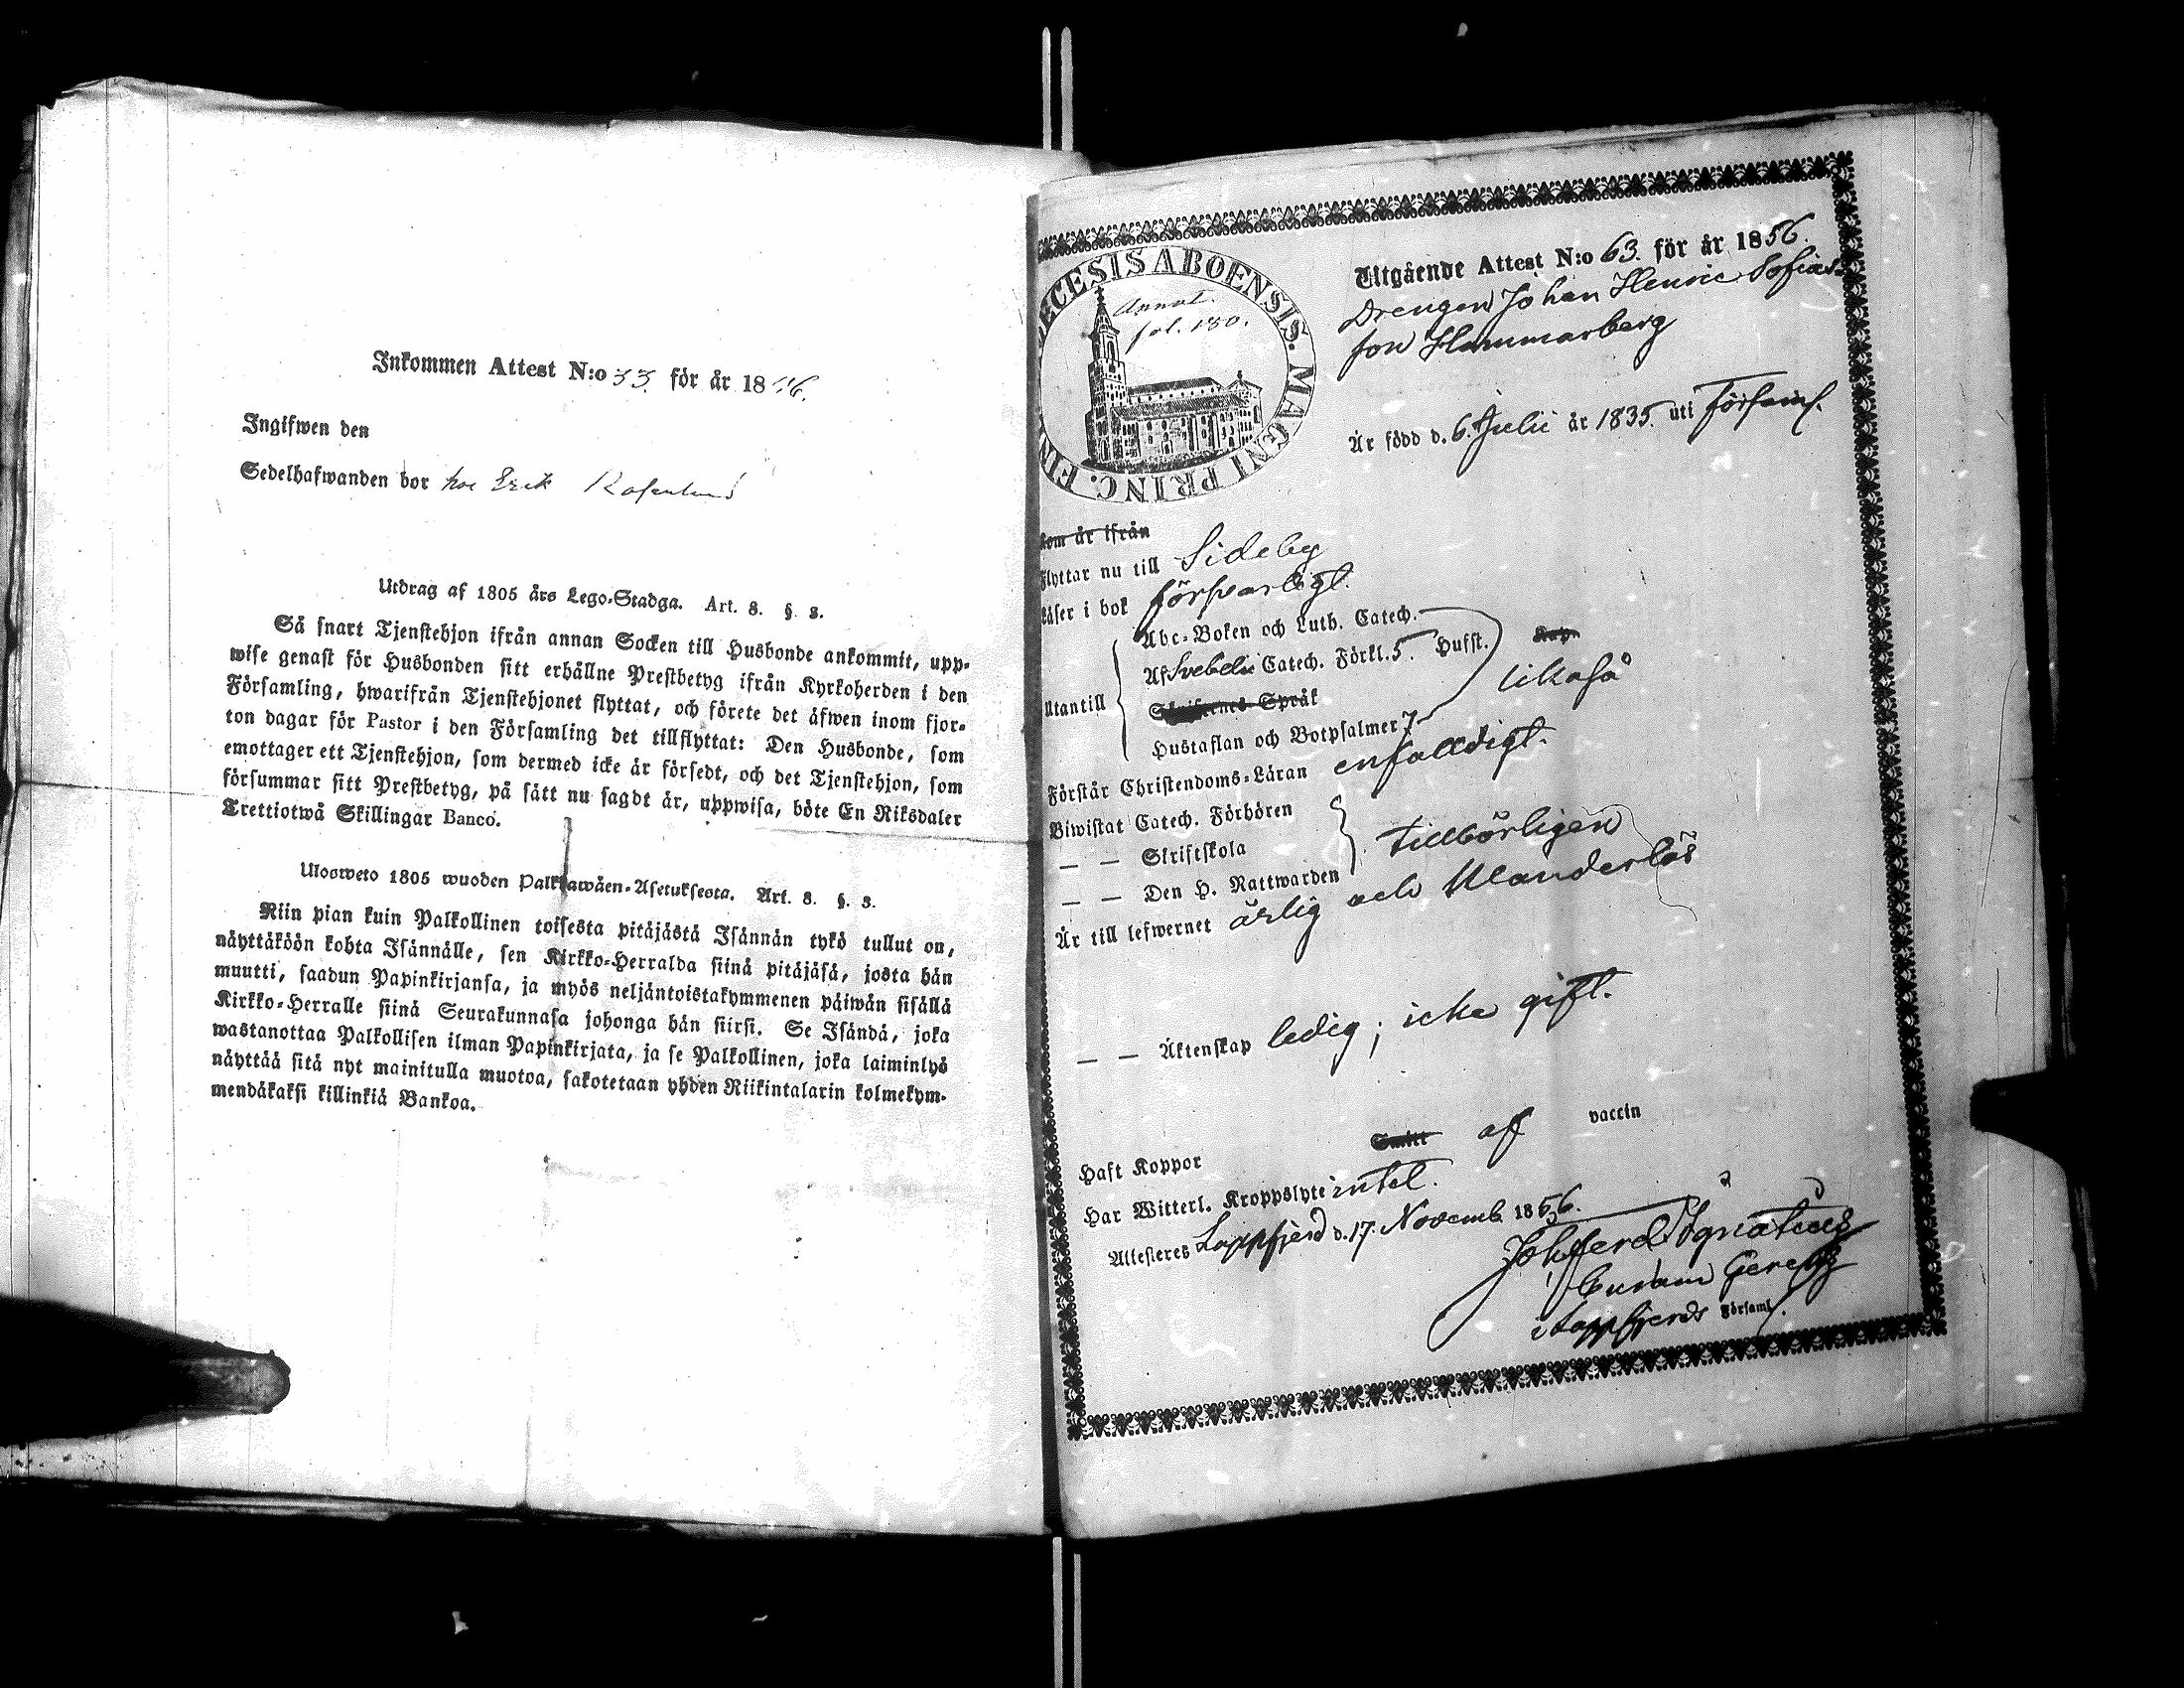 Inkommen Attest N:o 33 för år 18 56.
Ingifwen den
Sedelhafwanden bor hos Erik Rosenlund
Utdrag af 1805 års Lego-Stadga. Art. 8. §. 3.
Så snart Tjenstehjon ifrån annan Socken till Husbonde ankommit, upp-
wise genast för Husbonden sitt erhållne Prestbetyg ifrån Kyrkoherden i den
Församling, hwarifrån Tjenstehjonet flyttat, och förete det äfwen inom fjor-
ton dagar för Pastor i den Församling det tillflyttat: Den Husbonde, som
emottager ett Tjenstehjon, som dermed icke är försedt, och det Tjenstehjon, som
försummar sitt Prestbetyg, på sätt nu sagdt är, uppwisa, böte En Riksdaler
Trettiotwå Skillingar Banco.
Ulosweto 1805 wuoden Palkkawäen-Asetuksesta. Art. 8. §. 3.
Niin pian kuin Palkollinen toisesta pitäjästä Isännän tykö tullut on,
näyttäköön kohta Isännälle, sen Kirkko-Herralda siinä pitäjäsä, josta hän
muutti, saadun Papinkirjansa, ja myös neljäntoistakymmenen päiwän sisällä
Kirkko-Herralle siinä Seurakunnasa johonga hän siirsi. Se Isändä, joka
wastanottaa Palkollisen ilman Papinkirjata, ja se Palkollinen, joka laiminlyö
näyttää sitä nyt mainitulla muotoa, sakotetaan yhden Riikintalarin kolmekym-
mendäkaksi killinkiä Bankoa.
DIOECESIS ABOENSIS. MAGNI PRINC. FIN
Annot.
fol. 180.
Utgående Attest N:o 63. för år 1856.
Drengen Johan Henric Sofias
son Hammarberg
Är född d. 6. Julii år 1835. uti Församl.
kom är ifrån
Flyttar nu till Sideby
Läser i bok försvarligt.
Utantill
Abc-Boken och Luth. Catech.
Af Svebelii Catech. Förkl. 5. Hufst.
likaså
Skriftenes Språk
Hustaflan och Botpsalmer 7
Förstår Christendoms-Läran enfalldigt.
Biwistat Catech. Förhören
— — Skriftskola
tillbörligen
— — Den H. Nattwarden
Är till lefwernet ärlig och Klanderlös
— — Äktenskap ledig; icke gift.
Haft Koppor Smitt af vaccin
Har Witterl. Kroppslyte intet.
Attesteres Lappfjerd d. 17. Novemb. 1856.
Joh. Ferd. Ignatius
Curam Gerens
i Lappfjerds Församl.